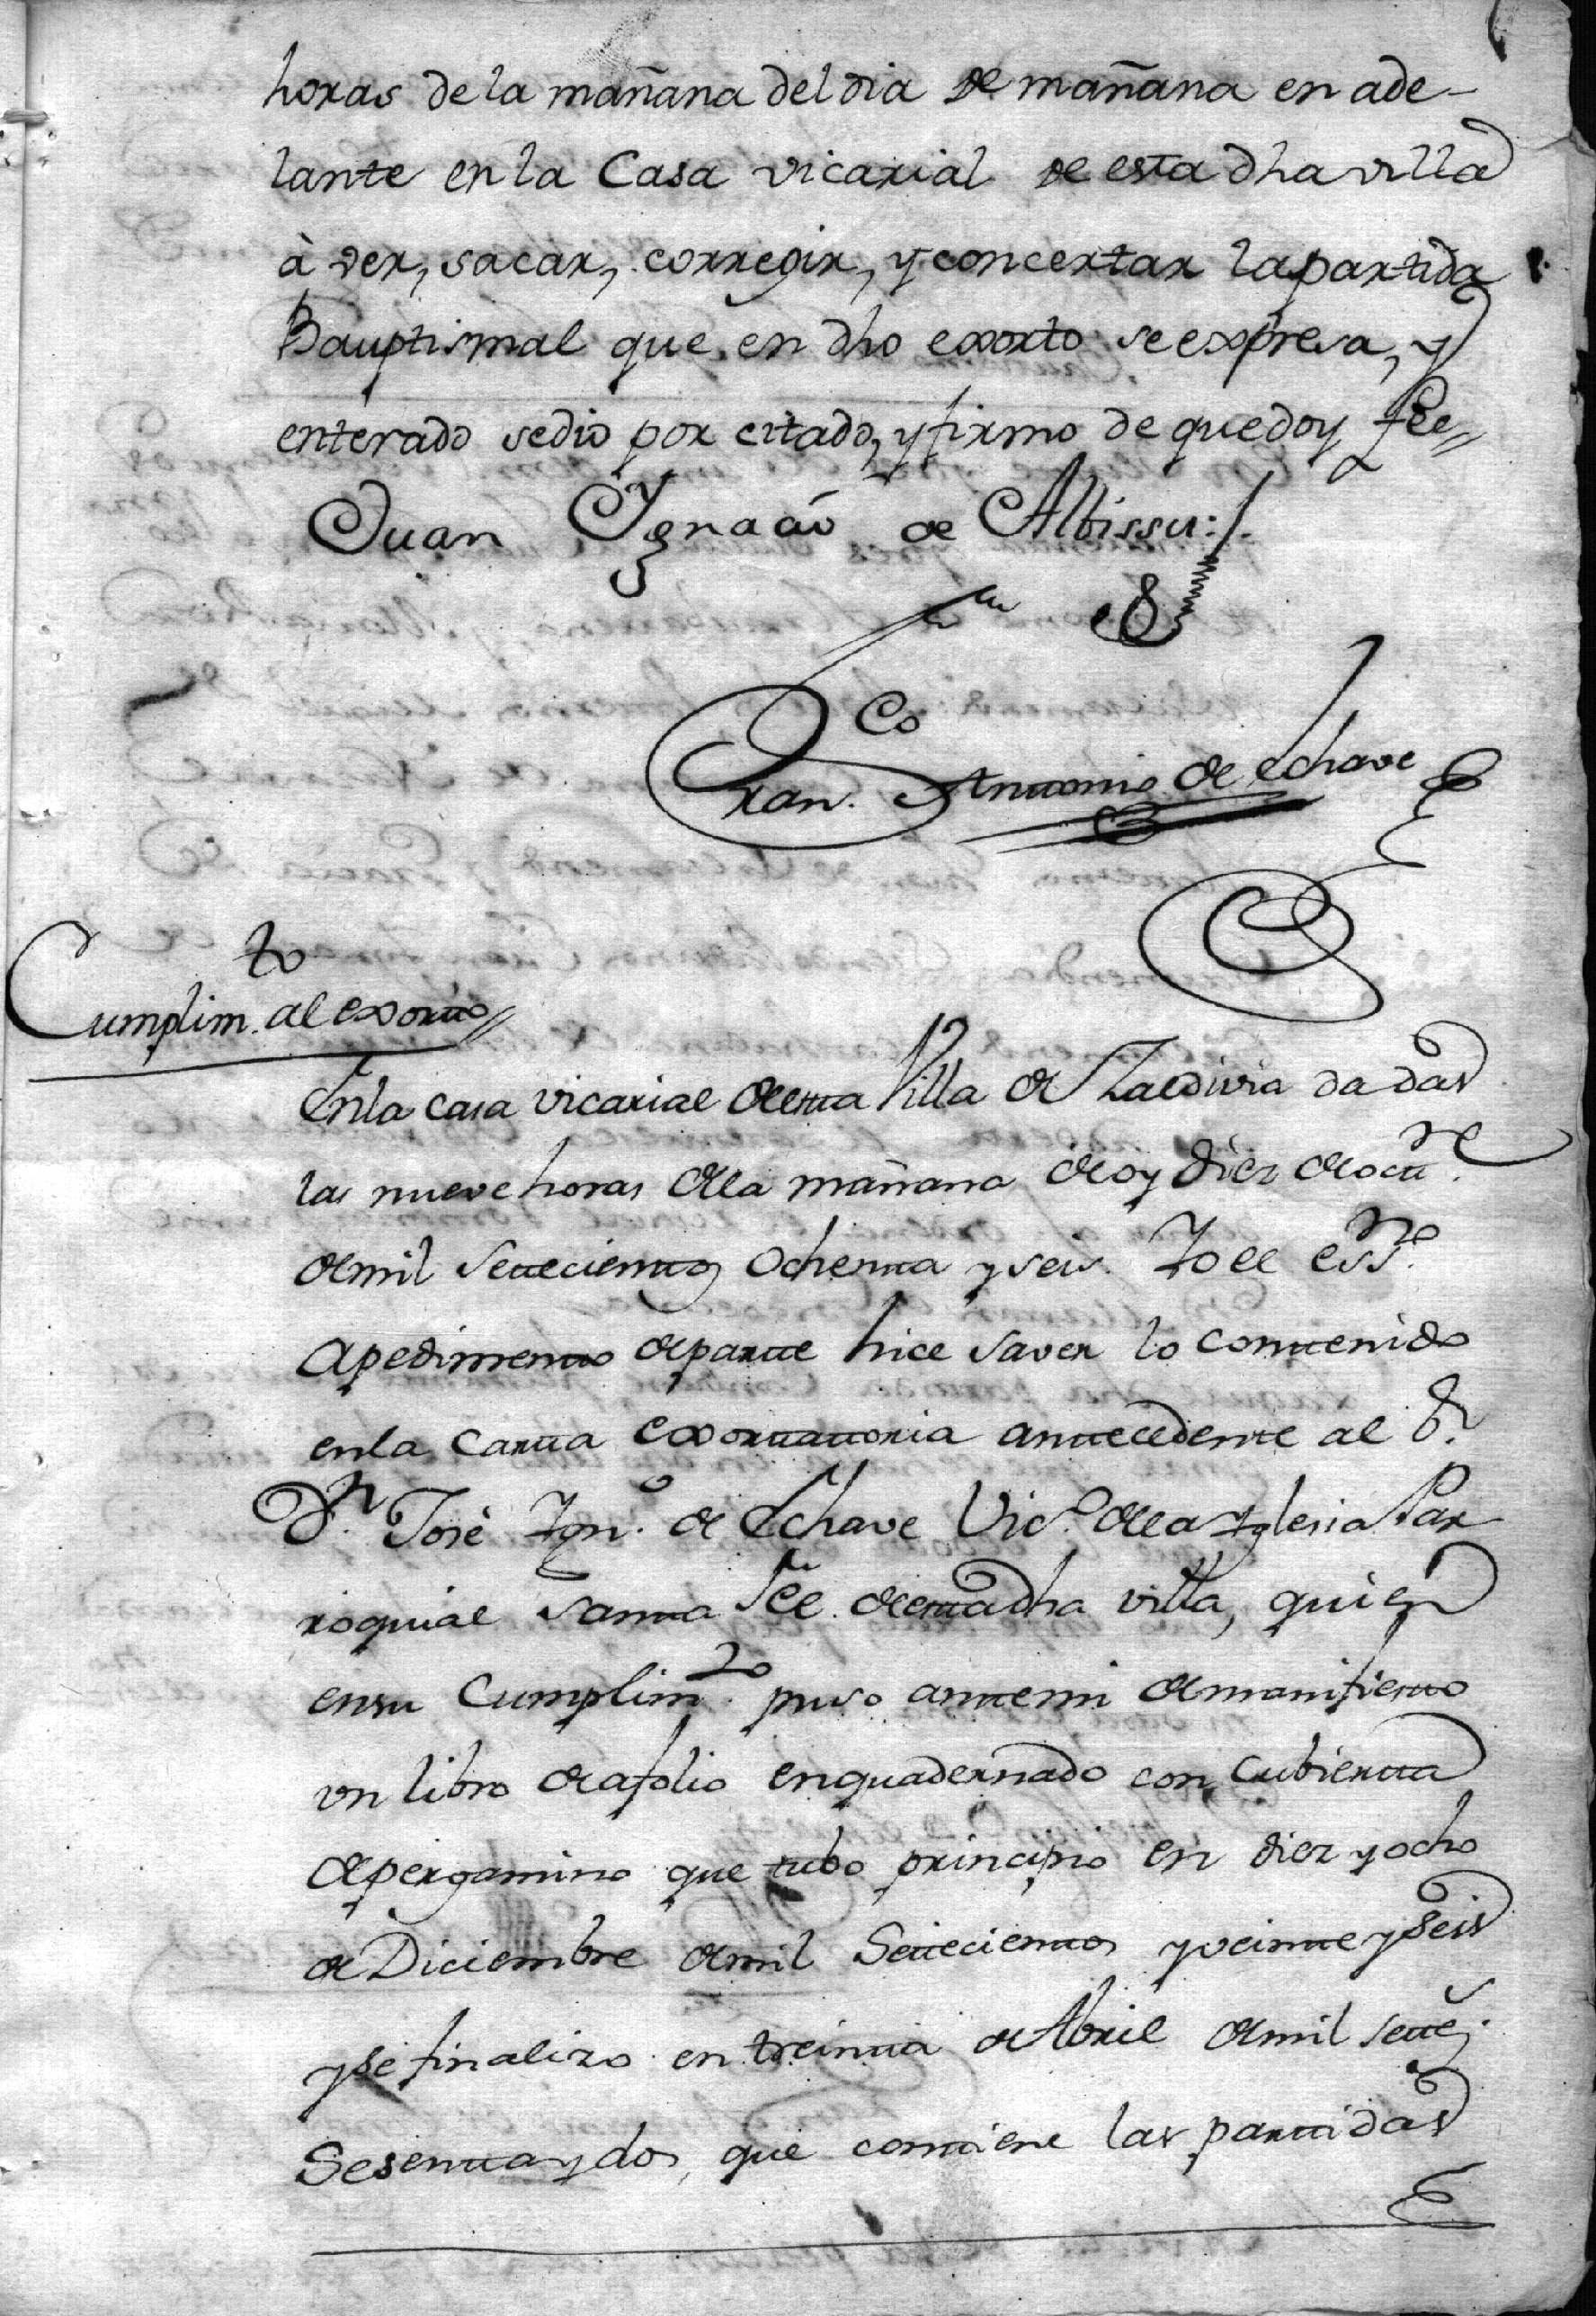 horas de la mañana del dia de mañana en ade-
lante en la Casa vicarial de esta dha villa
à ver, sacar, corregir, y concertar la partida
Bauptismal que en dho exorto se expresa, y
enterado se dio por citado, y firmo de que doy fee=
Juan Ygnacio de Albissu
Fran.co Antonio de Echave
Cumplim.to al exorto=
En la casa vicarial de esta Villa de Zaldivia dadas
las nueve horas de la mañana de oy diez de octu.re
de mil Setecientos ochenta y seis. Yo el ess.no
a pedimento de parte hice saver lo contenido
en la carta exortatoria antecedente al S.r
D.n José Ign.o de Echave Vic.o de la Yglesia Par
roquial Santa Fee de esta dha villa, quien
en su Cumplim.to puso ante mi de manifiesto
un libro de a folio enquadernado con cubierta
de pergamino que tubo principio en diez y ocho
de Diciembre de mil Setecientos y veinte y seis
y se finalizo en treinta de Abril de mil setec.
Sesenta y dos, que contiene las partidas